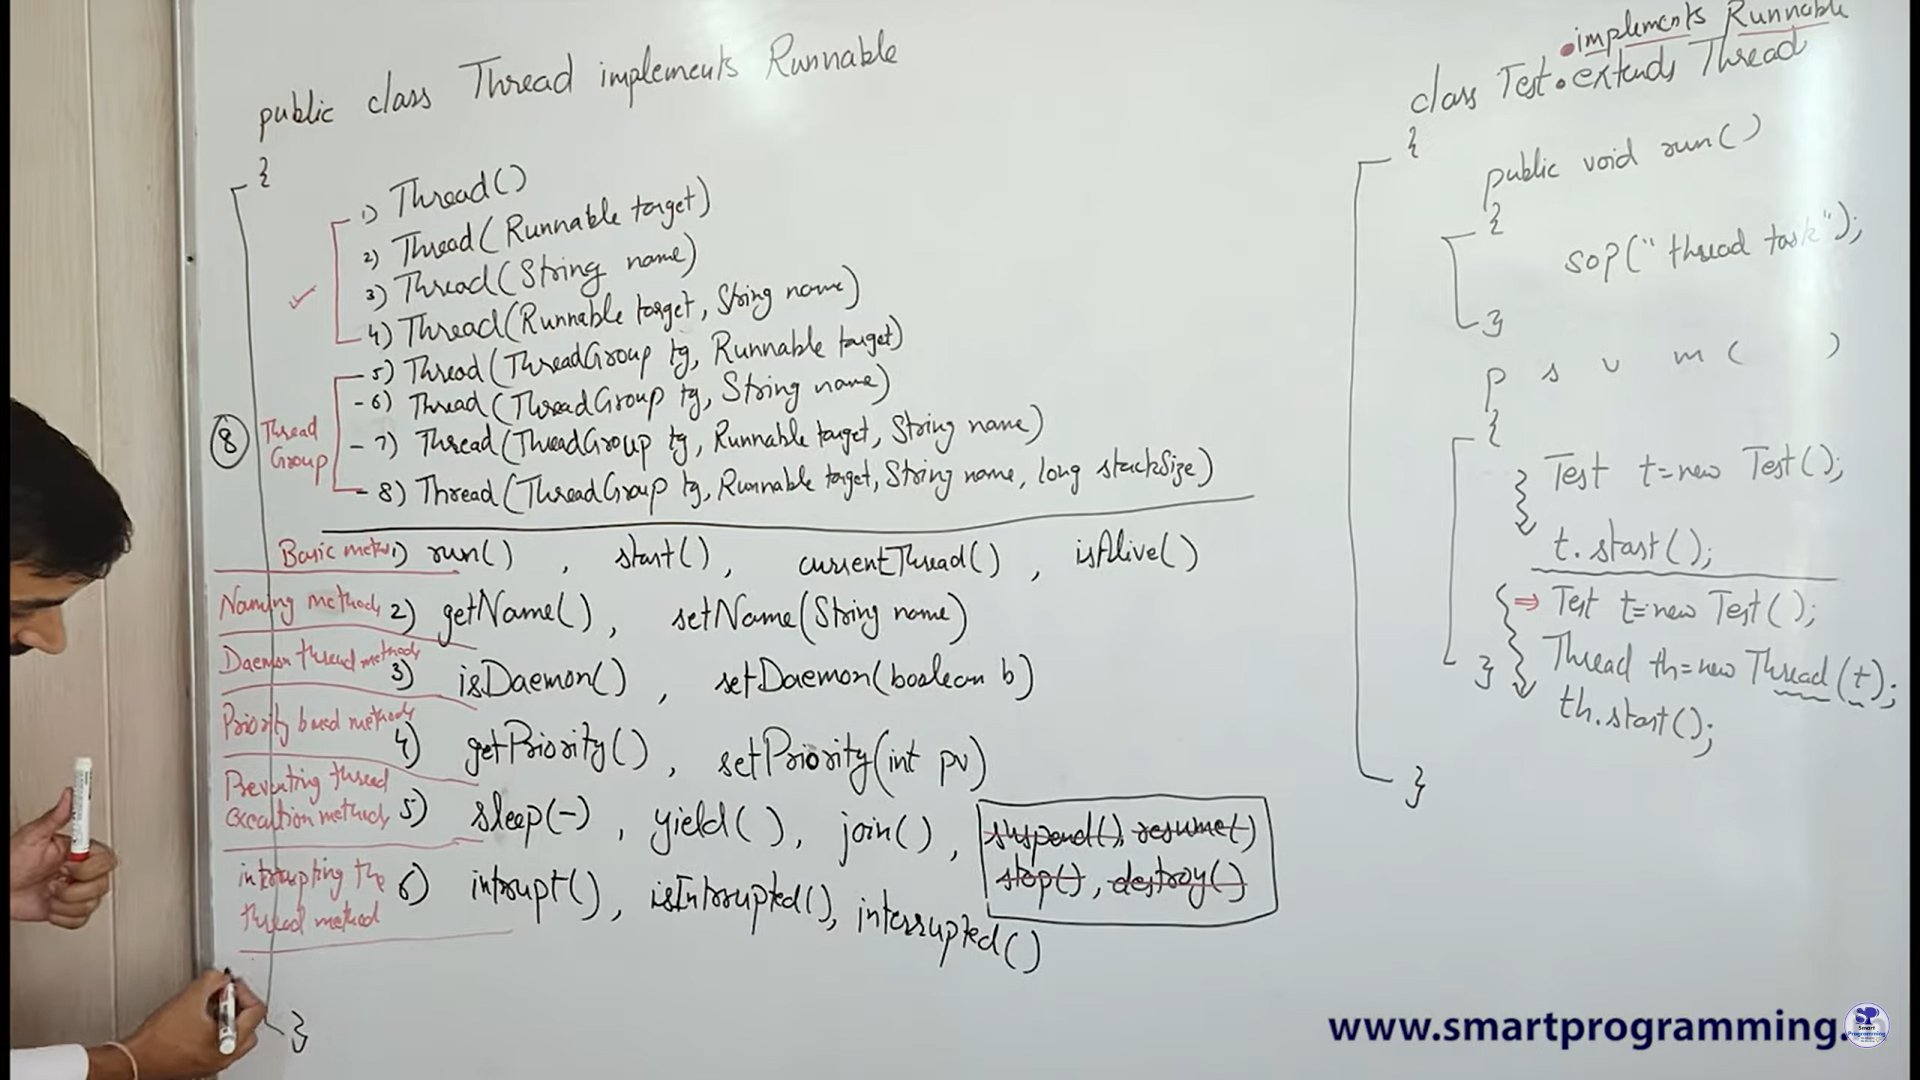 public class Thread implements Runnable
{
1) Thread()
2) Thread(Runnable target)
3) Thread(String name)
4) Thread(Runnable target, String name)
5) Thread(ThreadGroup tg, Runnable target)
-6) Thread(ThreadGroup tg, String name)
-7) Thread(ThreadGroup tg, Runnable target, String name)
-8) Thread(ThreadGroup tg, Runnable target, String name, long stackSize)
8
Thread
Group
Basic 1) run() , start() , currentThread() , isAlive()
Naming methods 2) getName() , setName(String name)
Daemon thread methods 3) isDaemon() , setDaemon(boolean b)
Priority based methods 4) getPriority() , setPriority(int pv)
Preventing thread
execution methods 5) sleep(-) , yield() , join() , suspend(), resume()
stop(), destroy()
interrupting the 6) intrupt() , isIntrupted(), interrupted()
thread method
}
implements Runnable
class Test extends Thread
{
public void run()
{
sop("thread task");
}
p s v m ( )
{
Test t=new Test();
t.start();
⇒ Test t=new Test();
Thread th=new Thread(t);
} th.start();
}
www.smartprogramming.
SP
Smart
Programming